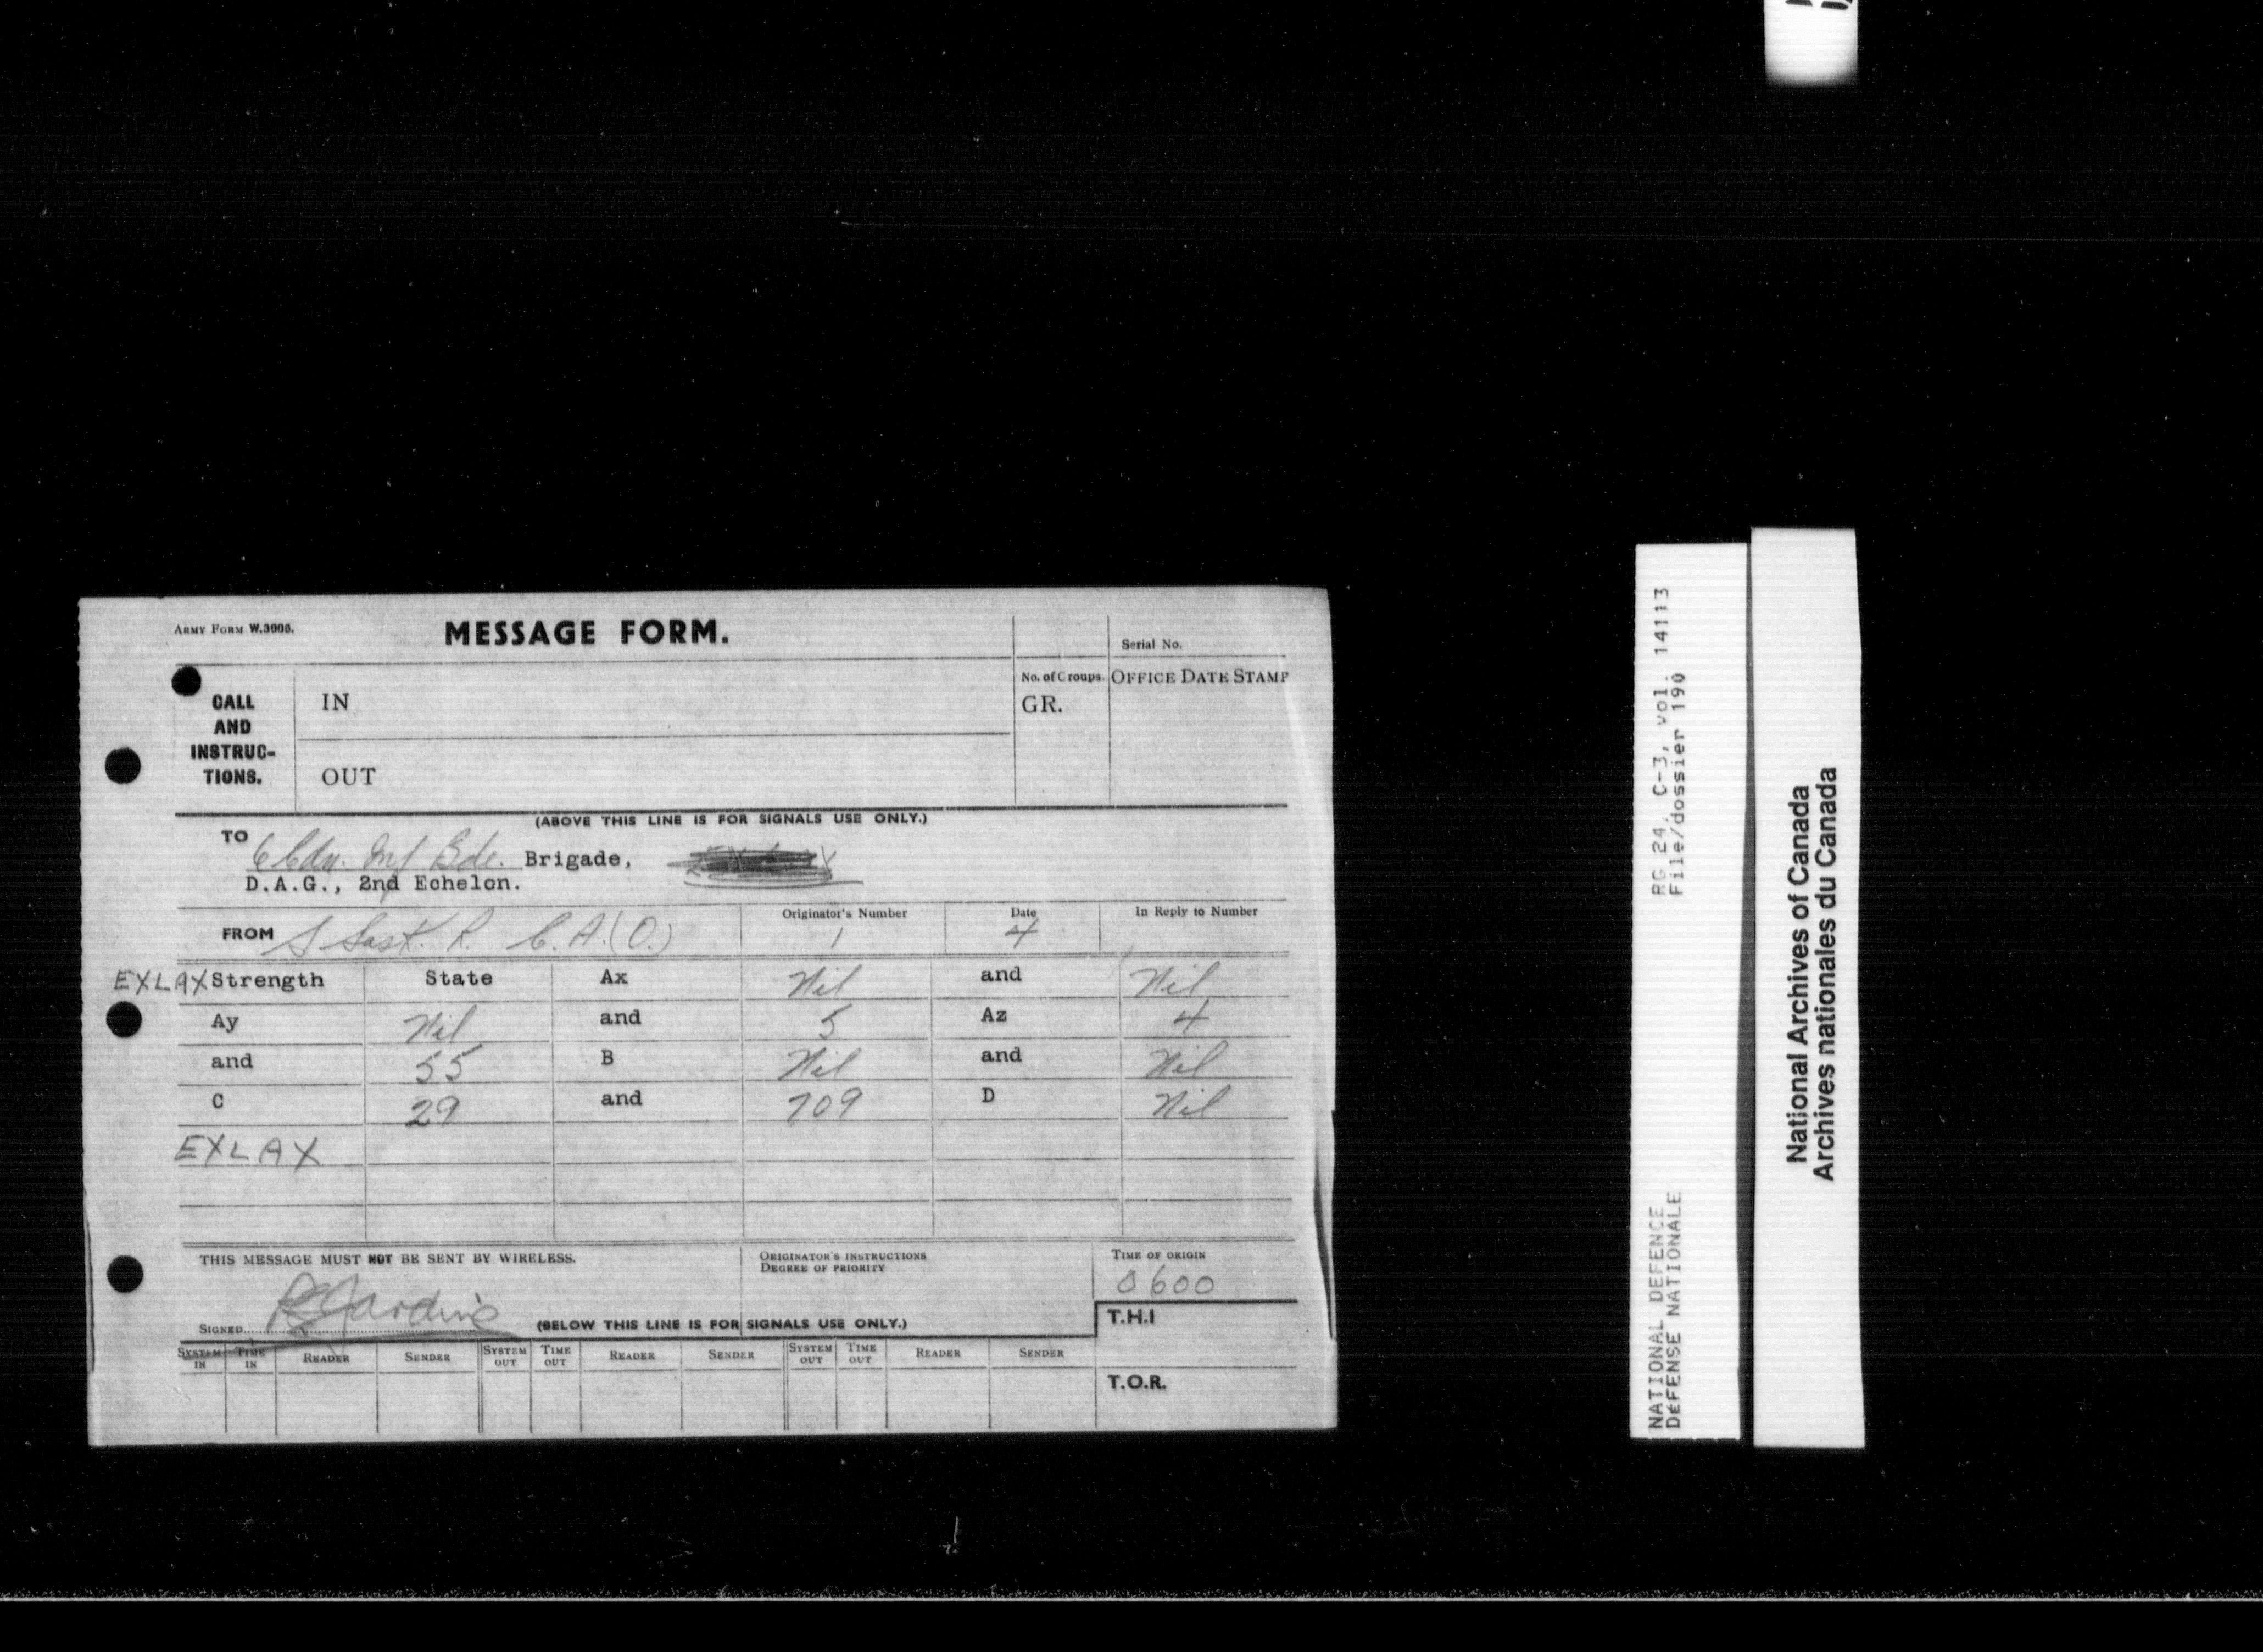 ARMY FORM W.3003.
MESSAGE FORM.
Serial No.
CALL AND INSTRUC- TIONS.
IN
OUT
No. of Groups.
GR.
OFFICE DATE STAMP
(ABOVE THIS LINE IS FOR SIGNALS USE ONLY.)
TO
6 Cdn. Inf Bde. Brigade,
D.A.G., 2nd Echelon.
FROM S Sask. R. C.A.(O.)
Originator's Number 1
Date 4
In Reply to Number
EXLAX Strength State Ax Nil and Nil
Ay Nil and 5 Az 4
and 55 B Nil and Nil
C 29 and 709 D Nil
EXLAX
THIS MESSAGE MUST NOT BE SENT BY WIRELESS.
ORIGINATOR'S INSTRUCTIONS
DEGREE OF PRIORITY
TIME OF ORIGIN
0600
SIGNED Jardine
(BELOW THIS LINE IS FOR SIGNALS USE ONLY.)
T.H.I
SYSTEM IN TIME IN READER SENDER SYSTEM OUT TIME OUT READER SENDER SYSTEM OUT TIME OUT READER SENDER
T.O.R.
RG 24, C-3, vol. 14113
File/dossier 190
NATIONAL DEFENCE
DÉFENSE NATIONALE
National Archives of Canada
Archives nationales du Canada